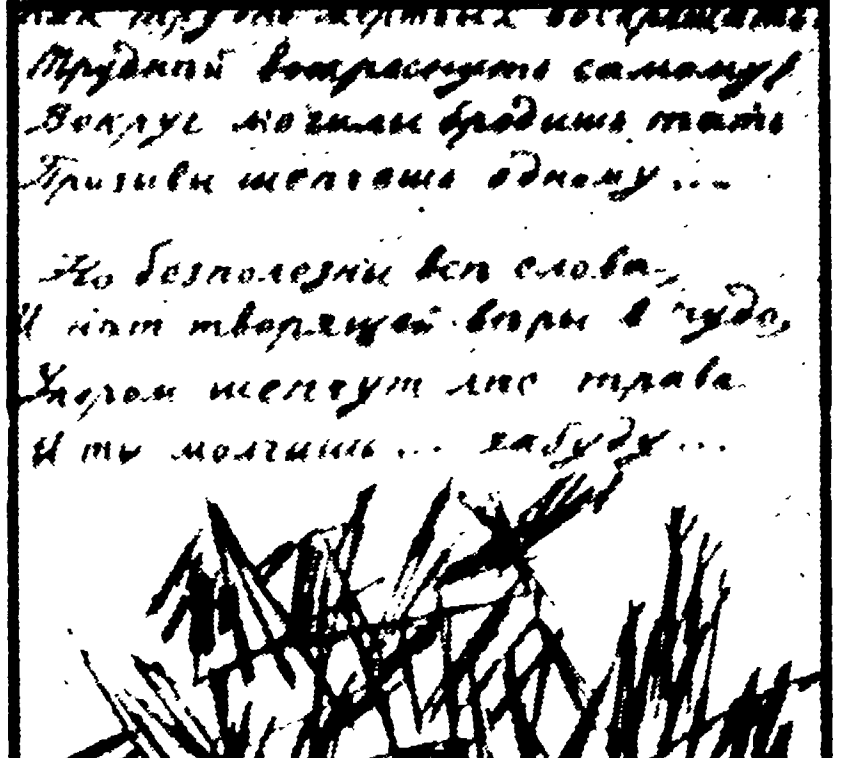 Как трудно мертвых воскрешать
Труднѣй воскреснуть самому!
Вокруг могилы бродишь тать
Призывы шепчешь одному...
Но безполезны всѣ слова,
И нѣт творящей вѣры в чудо,
Укором шепчут лѣс трава
И ты молчишь... забуду...